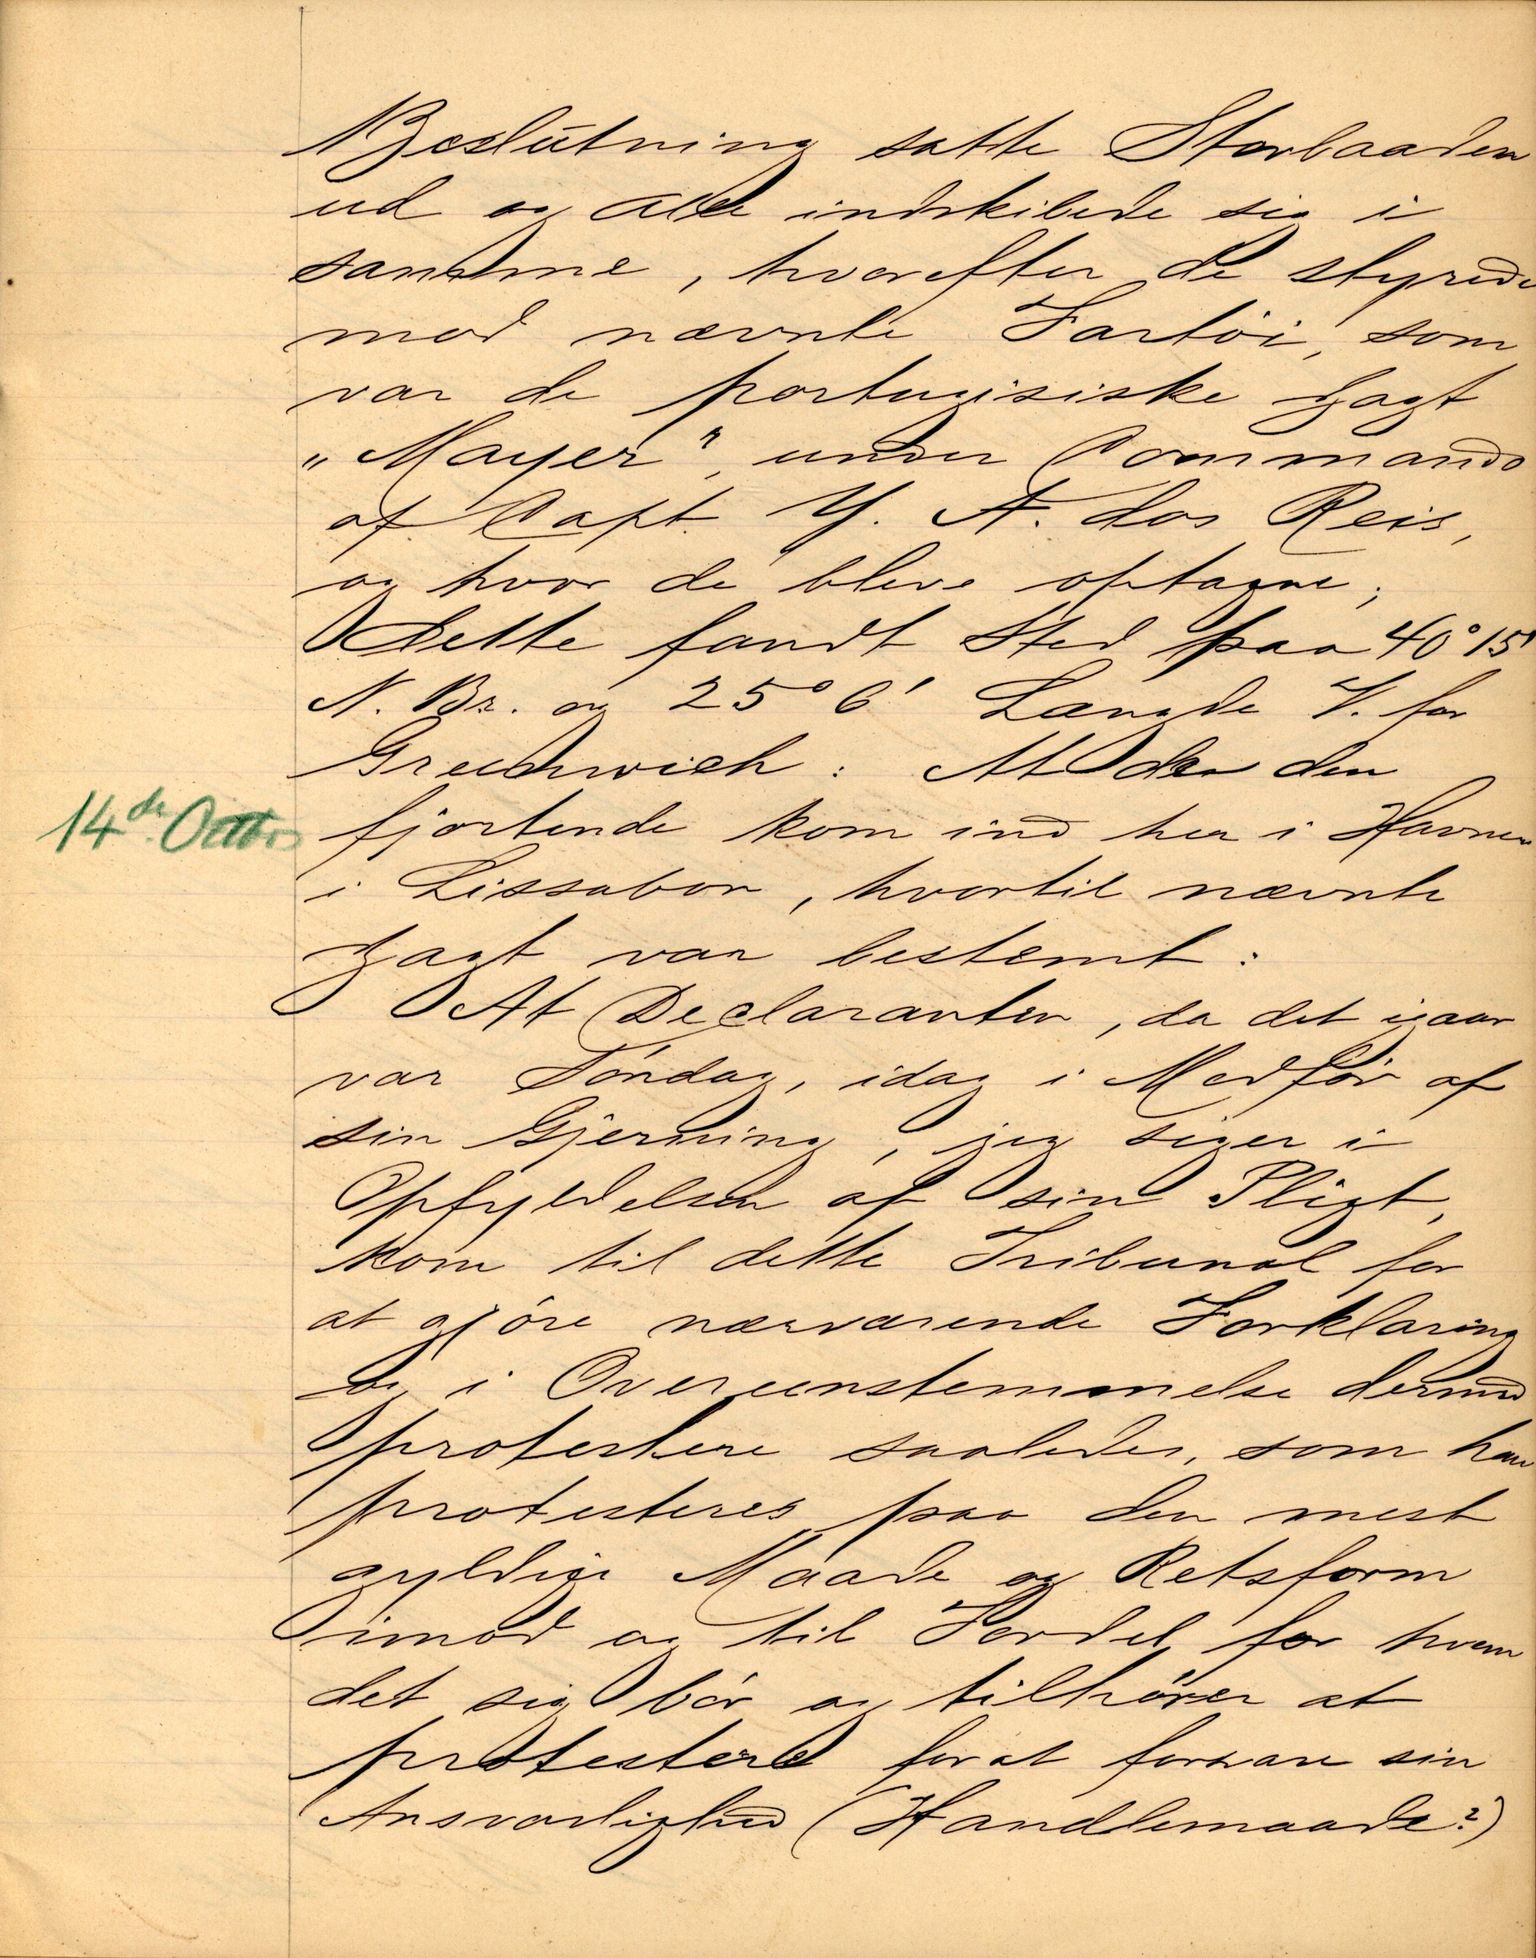 Beslutning satte Storbaaden
ud og alle indskibede sig i
samme, hvorefter de styrede
mod nævnte Fartöi, som
var de portugisiske Jagt
„Mayer“, under Commando
af Capt. Y. A. dos Reis,
og hvor de bleve optagne;
Dette fandt Sted paa 40° 15'
N. Br. og 25° 6' Længde V. for
Greenwich: At den
14de Octbr.
fjortende kom ind her i Havnen
i Lissabon, hvortil nævnte
Jagt var bestemt:
At Declaranten, da det igaar
var Söndag, idag i Medför af
sin Gjerning, jeg siger i
Opfyldelsen af sin Pligt,
kom til dette Tribunal for
at gjöre nærværende Forklaring
og i Overeenstemmelse dermed
protestere saaledes, som han
protesteres paa den mest
gyldige Maade og Retsform
imod og til Fordel for hvem
det sig bör og tilhörer at
protestere for at forsvare sin
Ansvarlighed (Handlemaade?)